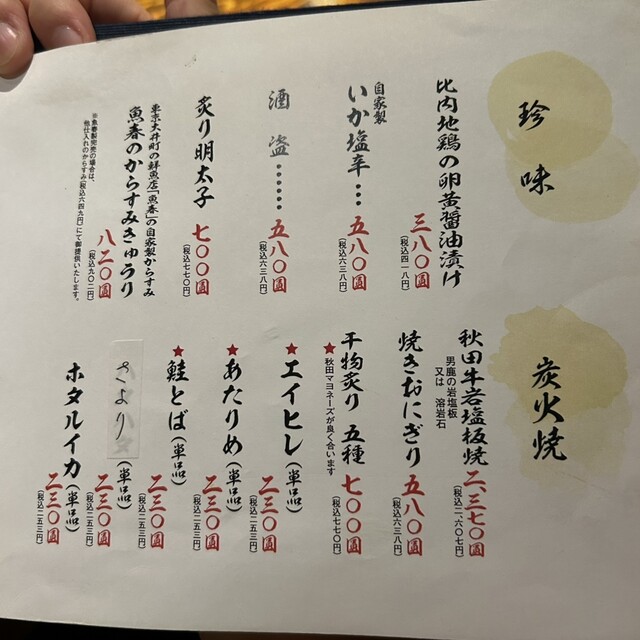 珍味
比内地鶏の卵黄醤油漬け
三八〇圓
(税込四一八円)
自家製
いか塩辛…
五八〇圓
(税込六三八円)
酒盗……
五八〇圓
(税込六三八円)
炙り明太子
七〇〇圓
(税込七七〇円)
東京大井町の鮮魚店「魚春」の自家製からすみ
魚春のからすみきゅうり
八二〇圓
(税込九〇二円)
※魚春製完売の場合は、
他仕入れのからすみ(税込六四九円)にて御提供いたします。
炭火焼
秋田牛岩塩板焼
男鹿の岩塩板
又は 溶岩石
二、三七〇圓
(税込二、六〇七円)
焼きおにぎり
五八〇圓
(税込六三八円)
干物炙り 五種
★秋田マヨネーズが良く合います
七〇〇圓
(税込七七〇円)
★エイヒレ(単品)
二三〇圓
(税込二五三円)
★あたりめ(単品)
二三〇圓
(税込二五三円)
★鮭とば(単品)
二三〇圓
(税込二五三円)
さより(単品)
二三〇圓
(税込二五三円)
ホタルイカ(単品)
二三〇圓
(税込二五三円)